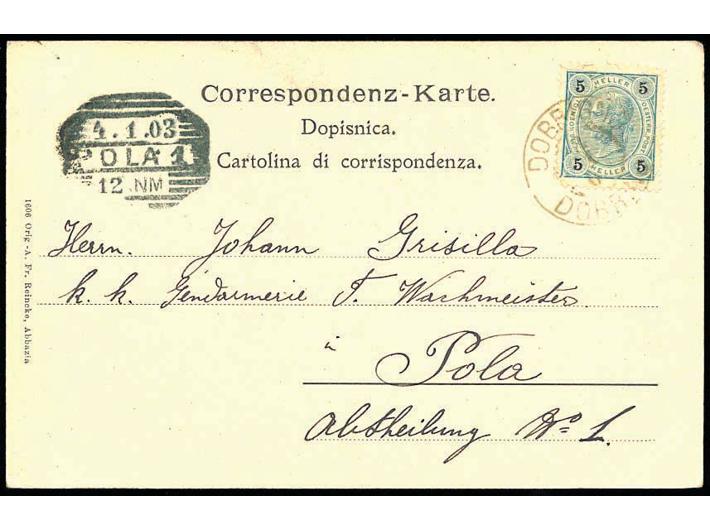 Correspondenz-Karte.
Dopisnica.
Cartolina di corrispondenza.
4.1.03
POLA 1
12 NM
5 HELLER 5
5 HELLER 5
DOBR
DOBR
Herrn. Johann Grisilla
k. k. Gendarmerie T. Wachmeister
à
Pola
Abtheilung No 1.
1606 Orig.-A. Fr. Reinecke, Abbazia